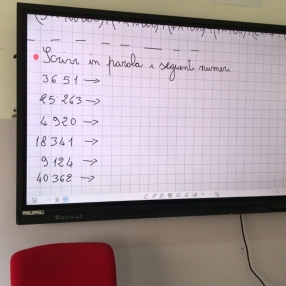 • Scrivi in parola i seguenti numeri
3651 →
25 263 →
4 920 →
18 341 →
9 124 →
40 362 →